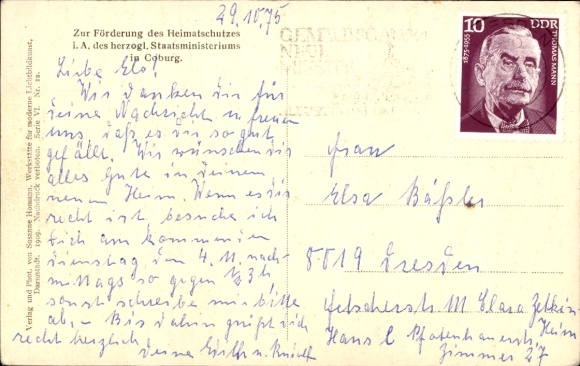 29.10.75
Zur Förderung des Heimatschutzes
i. A. des herzogl. Staatsministeriums
in Coburg.
Liebe Elo!
Wir danken dir für
deine Nachricht u. freuen
uns, daß es dir so gut
gefällt. Wir wünschen dir
alles Gute in deinem
neuen Heim. Wenn es dir
recht ist besuche ich
dich am kommenden
Dienstag den 4. 11. nach-
mittags so gegen ½3 h
sonst schreibe mir bitte
ab. – Bis dahin grüßt dich
recht herzlich
deine Edith u. Rudolf
Verlag und Phot. von Susanne Homann, Werkstätte für moderne Lichtbildkunst,
Darmstadt. 1909. Nachdruck verboten. Serie VI. Nr. 12.
10 DDR
1875-1955
THOMAS MANN
Frau
Elsa Bäßler
8019 Dresden
Fetscherstr. 111 Clara Zetkin
Heim
Haus C Pfotenhauerstr.
Zimmer 27